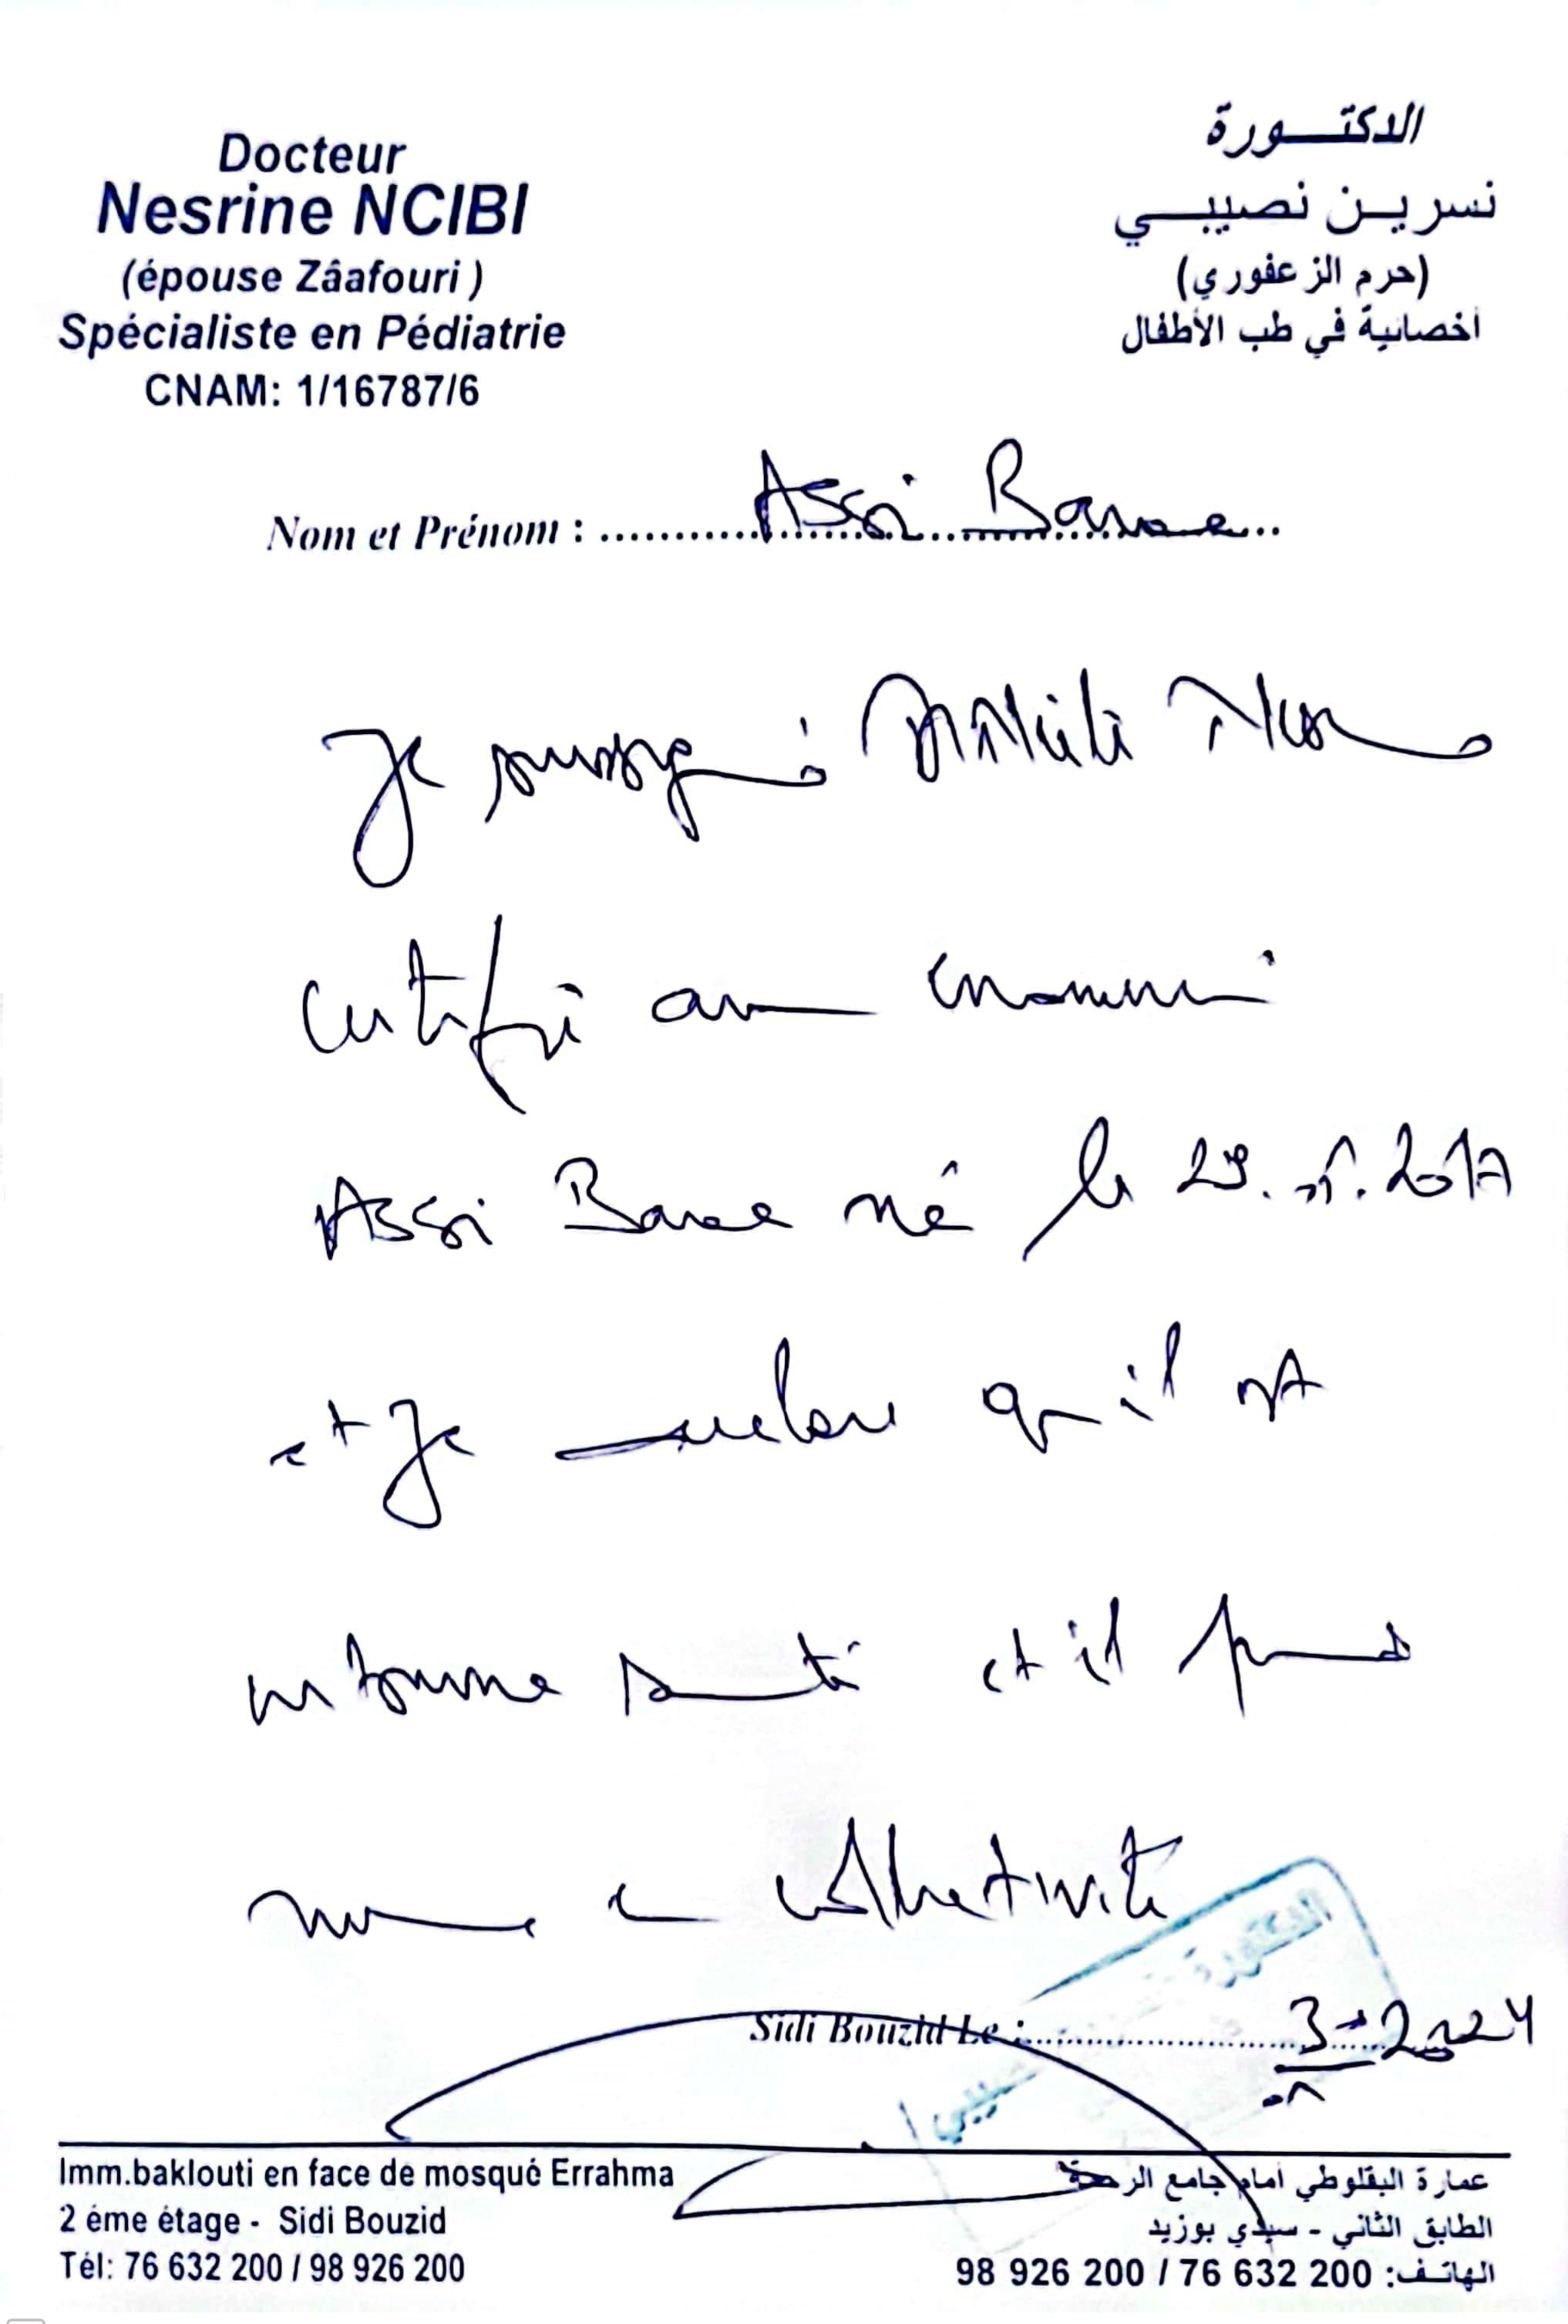 Docteur
Nesrine NCIBI
(épouse Zâafouri )
Spécialiste en Pédiatrie
CNAM: 1/16787/6
الدكتــورة
نسريـن نصيبــي
(حرم الزعفوري)
أخصائية في طب الأطفال
Nom et Prénom : Assi
Je soussigné
certifie avoir examiné
Assi né le 2017
et Je déclare qu'il est
en bonne santé et il peut
vivre en collectivité
الدكتورة
نصيبي
Sidi Bouzid Le : 3 2024
Imm.baklouti en face de mosqué Errahma
2 éme étage - Sidi Bouzid
Tél: 76 632 200 / 98 926 200
عمارة البقلوطي أمام جامع الرحمة
الطابق الثاني - سيدي بوزيد
الهاتـف: 200 632 76 / 200 926 98